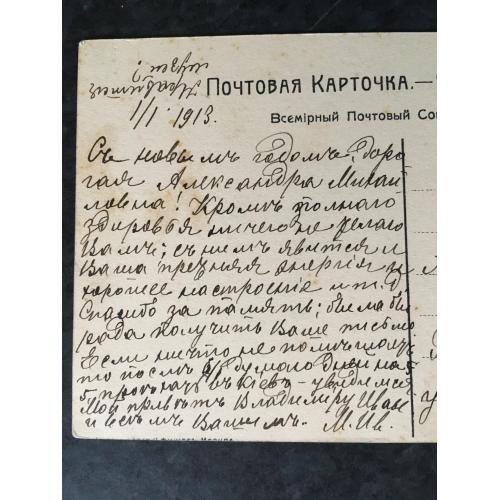 Нравится
музей?
ПОЧТОВАЯ КАРТОЧКА.—
1/I 1913.
Всемірный Почтовый Со
Съ новымъ годомъ, доро
гая Александра Михай
ловна! Кромѣ полнаго
здоровья ничего не желаю
Вамъ; съ нимъ явится и
Ваша прежняя энергія и
хорошее настроеніе и т. д.
Спасибо за память; была бы
рада получить Ваше письмо.
Если ничто не помѣшаетъ
то послѣ 6/I буду дней на
5 проѣздомъ въ Кіевѣ - увидимся
Мой привѣтъ Владиміру Иван
и всѣмъ Вашимъ. М. Ив.